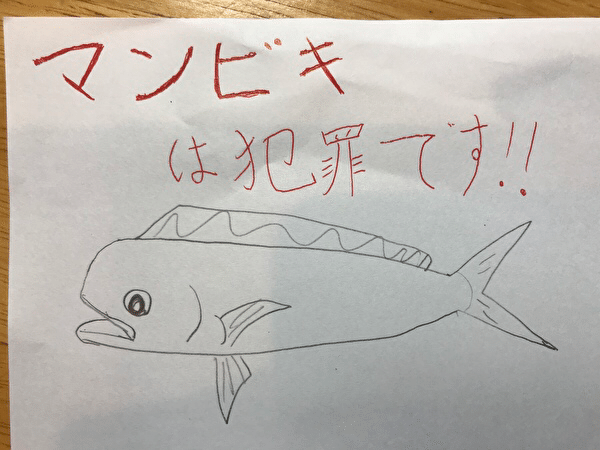 マンビキ
は犯罪です!!